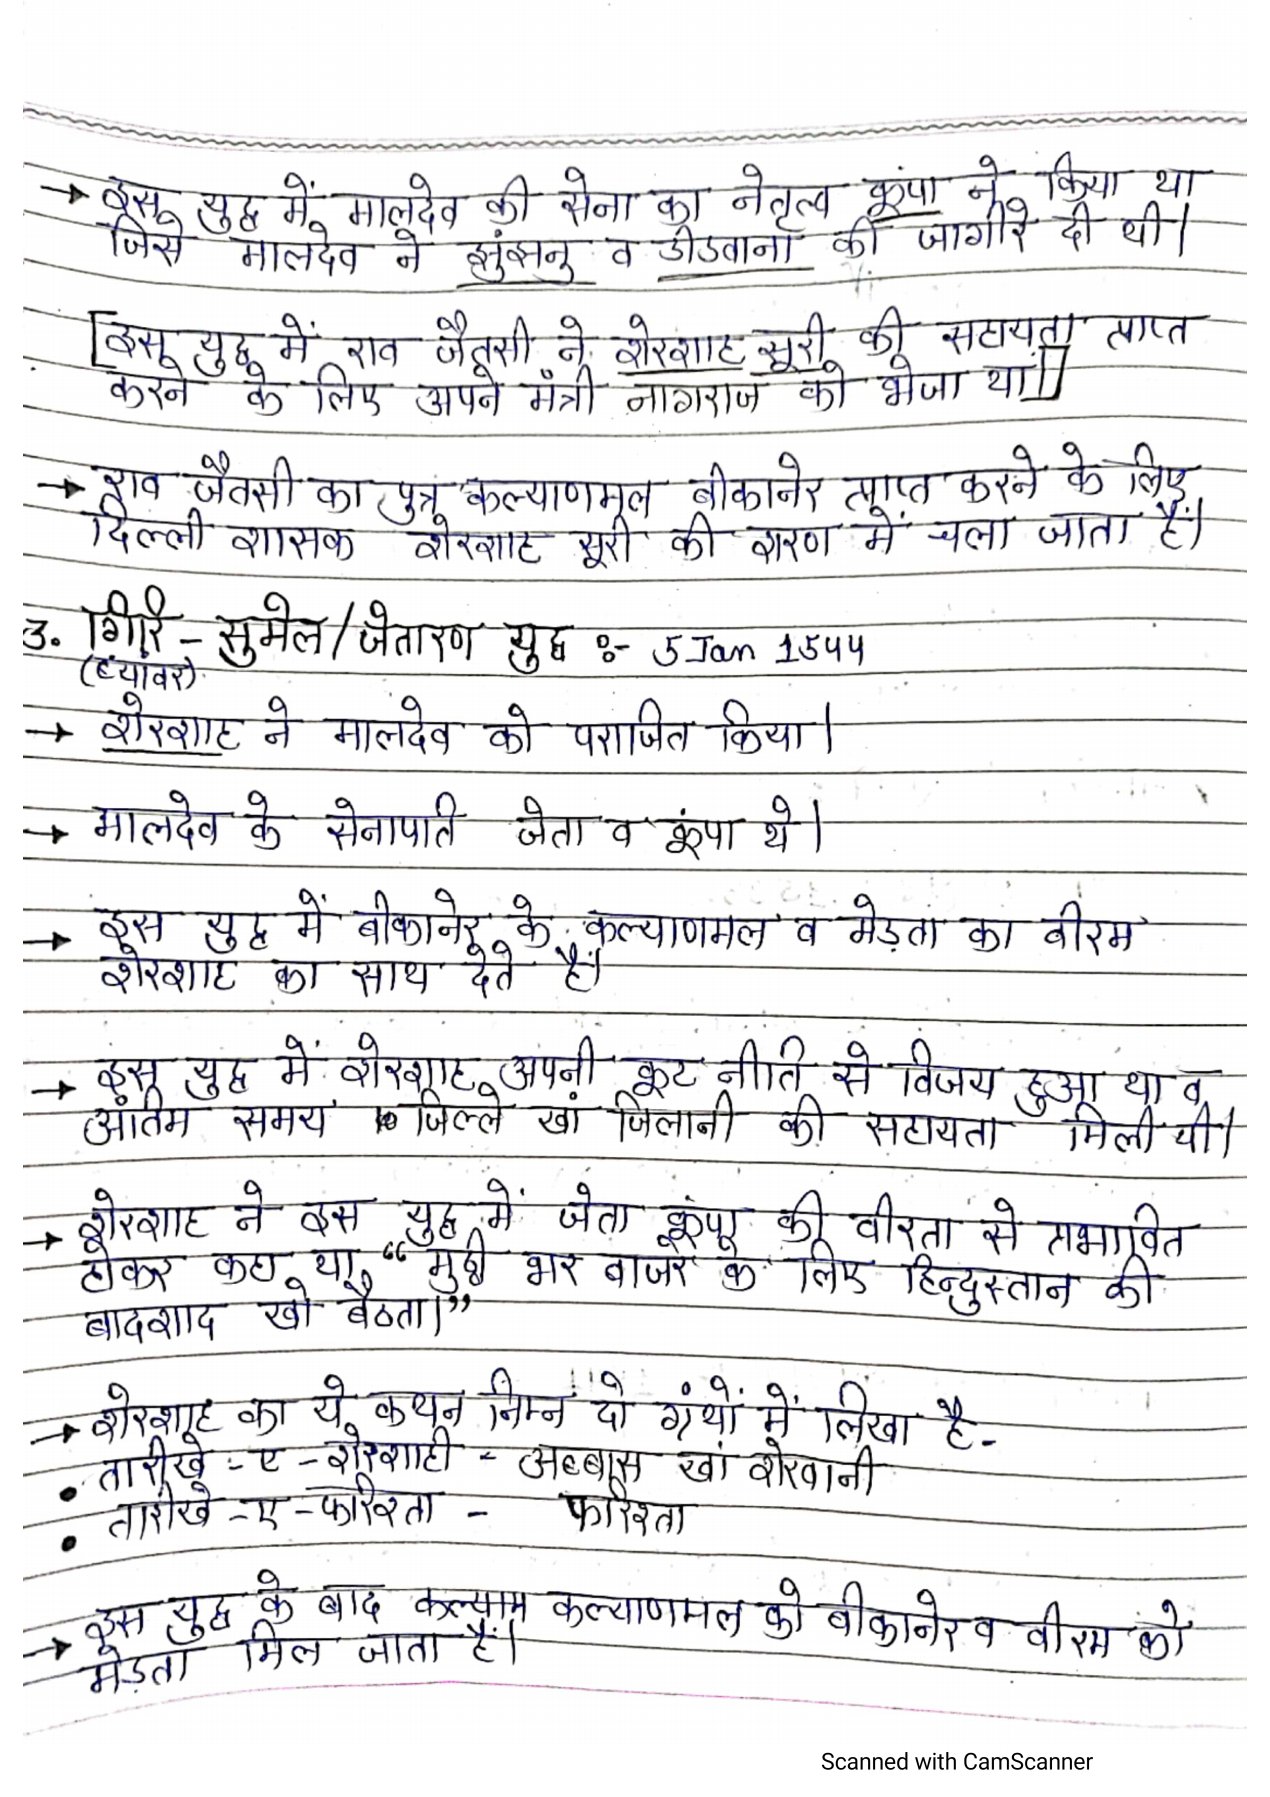 → इस युद्ध में मालदेव की सेना का नेतृत्व कूंपा ने किया था
जिसे मालदेव ने झुंझनु व डीडवाना की जागीरे दी थी।
[इस युद्ध में राव जैतसी ने शेरशाह सूरी की सहायता प्राप्त
करने के लिए अपने मंत्री नागराज को भेजा था]
→ राव जैतसी का पुत्र कल्याणमल बीकानेर प्राप्त करने के लिए
दिल्ली शासक शेरशाह सूरी की शरण में चला जाता हैं।
3. गिरि - सुमेल/जेतारण युद्ध :- 5 Jan 1544
(ब्यावर)
→ शेरशाह ने मालदेव को पराजित किया।
→ मालदेव के सेनापति जेता व कूंपा थे।
→ इस युद्ध में बीकानेर के कल्याणमल व मेड़ता का वीरम
शेरशाह का साथ देते हैं।
→ इस युद्ध में शेरशाह अपनी कूट नीति से विजय हुआ था व
अंतिम समय जिल्ले खां जिलानी की सहायता मिली थी।
→ शेरशाह ने इस युद्ध में जेता कूंपा की वीरता से प्रभावित
होकर कहा था, “मुठ्ठी भर बाजरे के लिए हिन्दुस्तान की
बादशाद खो बैठता।”
→ शेरशाह का ये कथन निम्न दो ग्रंथों में लिखा है-
• तारीखे - ए - शेरशाही - अब्बास खां शेरवानी
• तारीखे - ए - फरिश्ता - फरिश्ता
→ इस युद्ध के बाद कल्याम कल्याणमल को बीकानेर व वीरम को
मेड़ता मिल जाता हैं।
Scanned with CamScanner